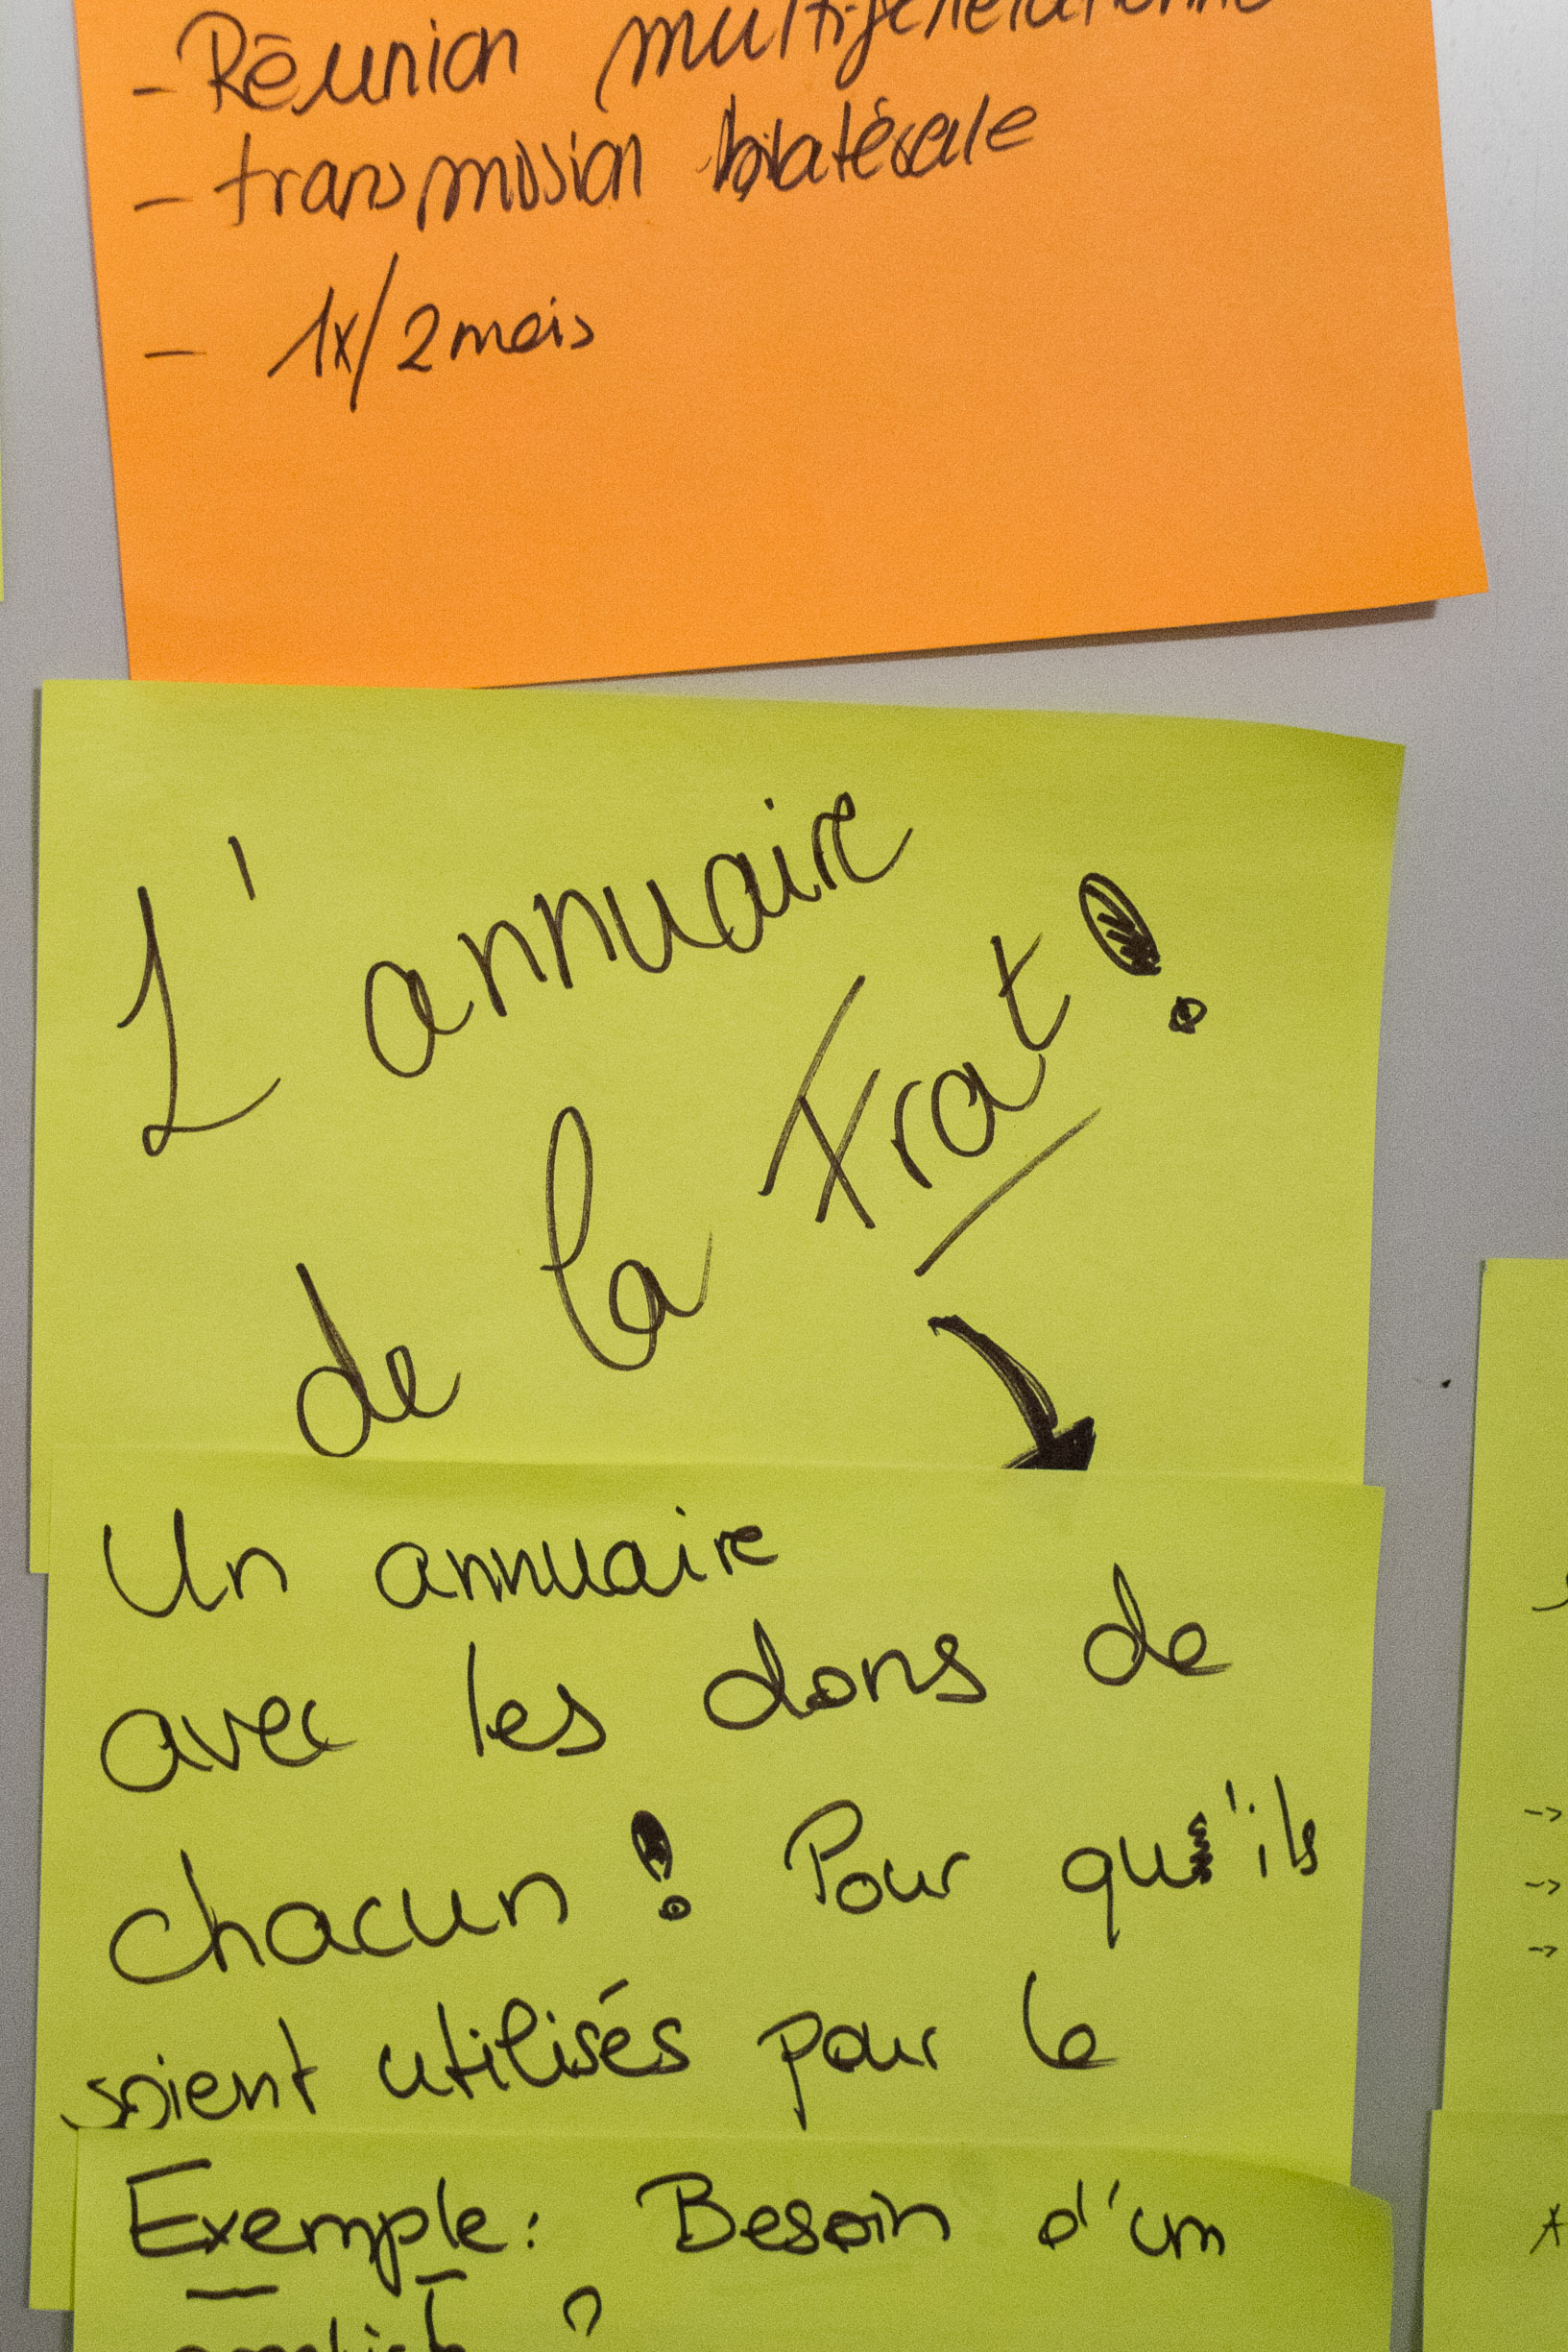 - Réunion multigénérationnelle
- transmission bilatérale
- 1x/2 mois
L'annuaire
de la Frat !
Un annuaire
avec les dons de
chacun ! Pour qu'ils
soient utilisés pour le
Exemple : Besoin d'un